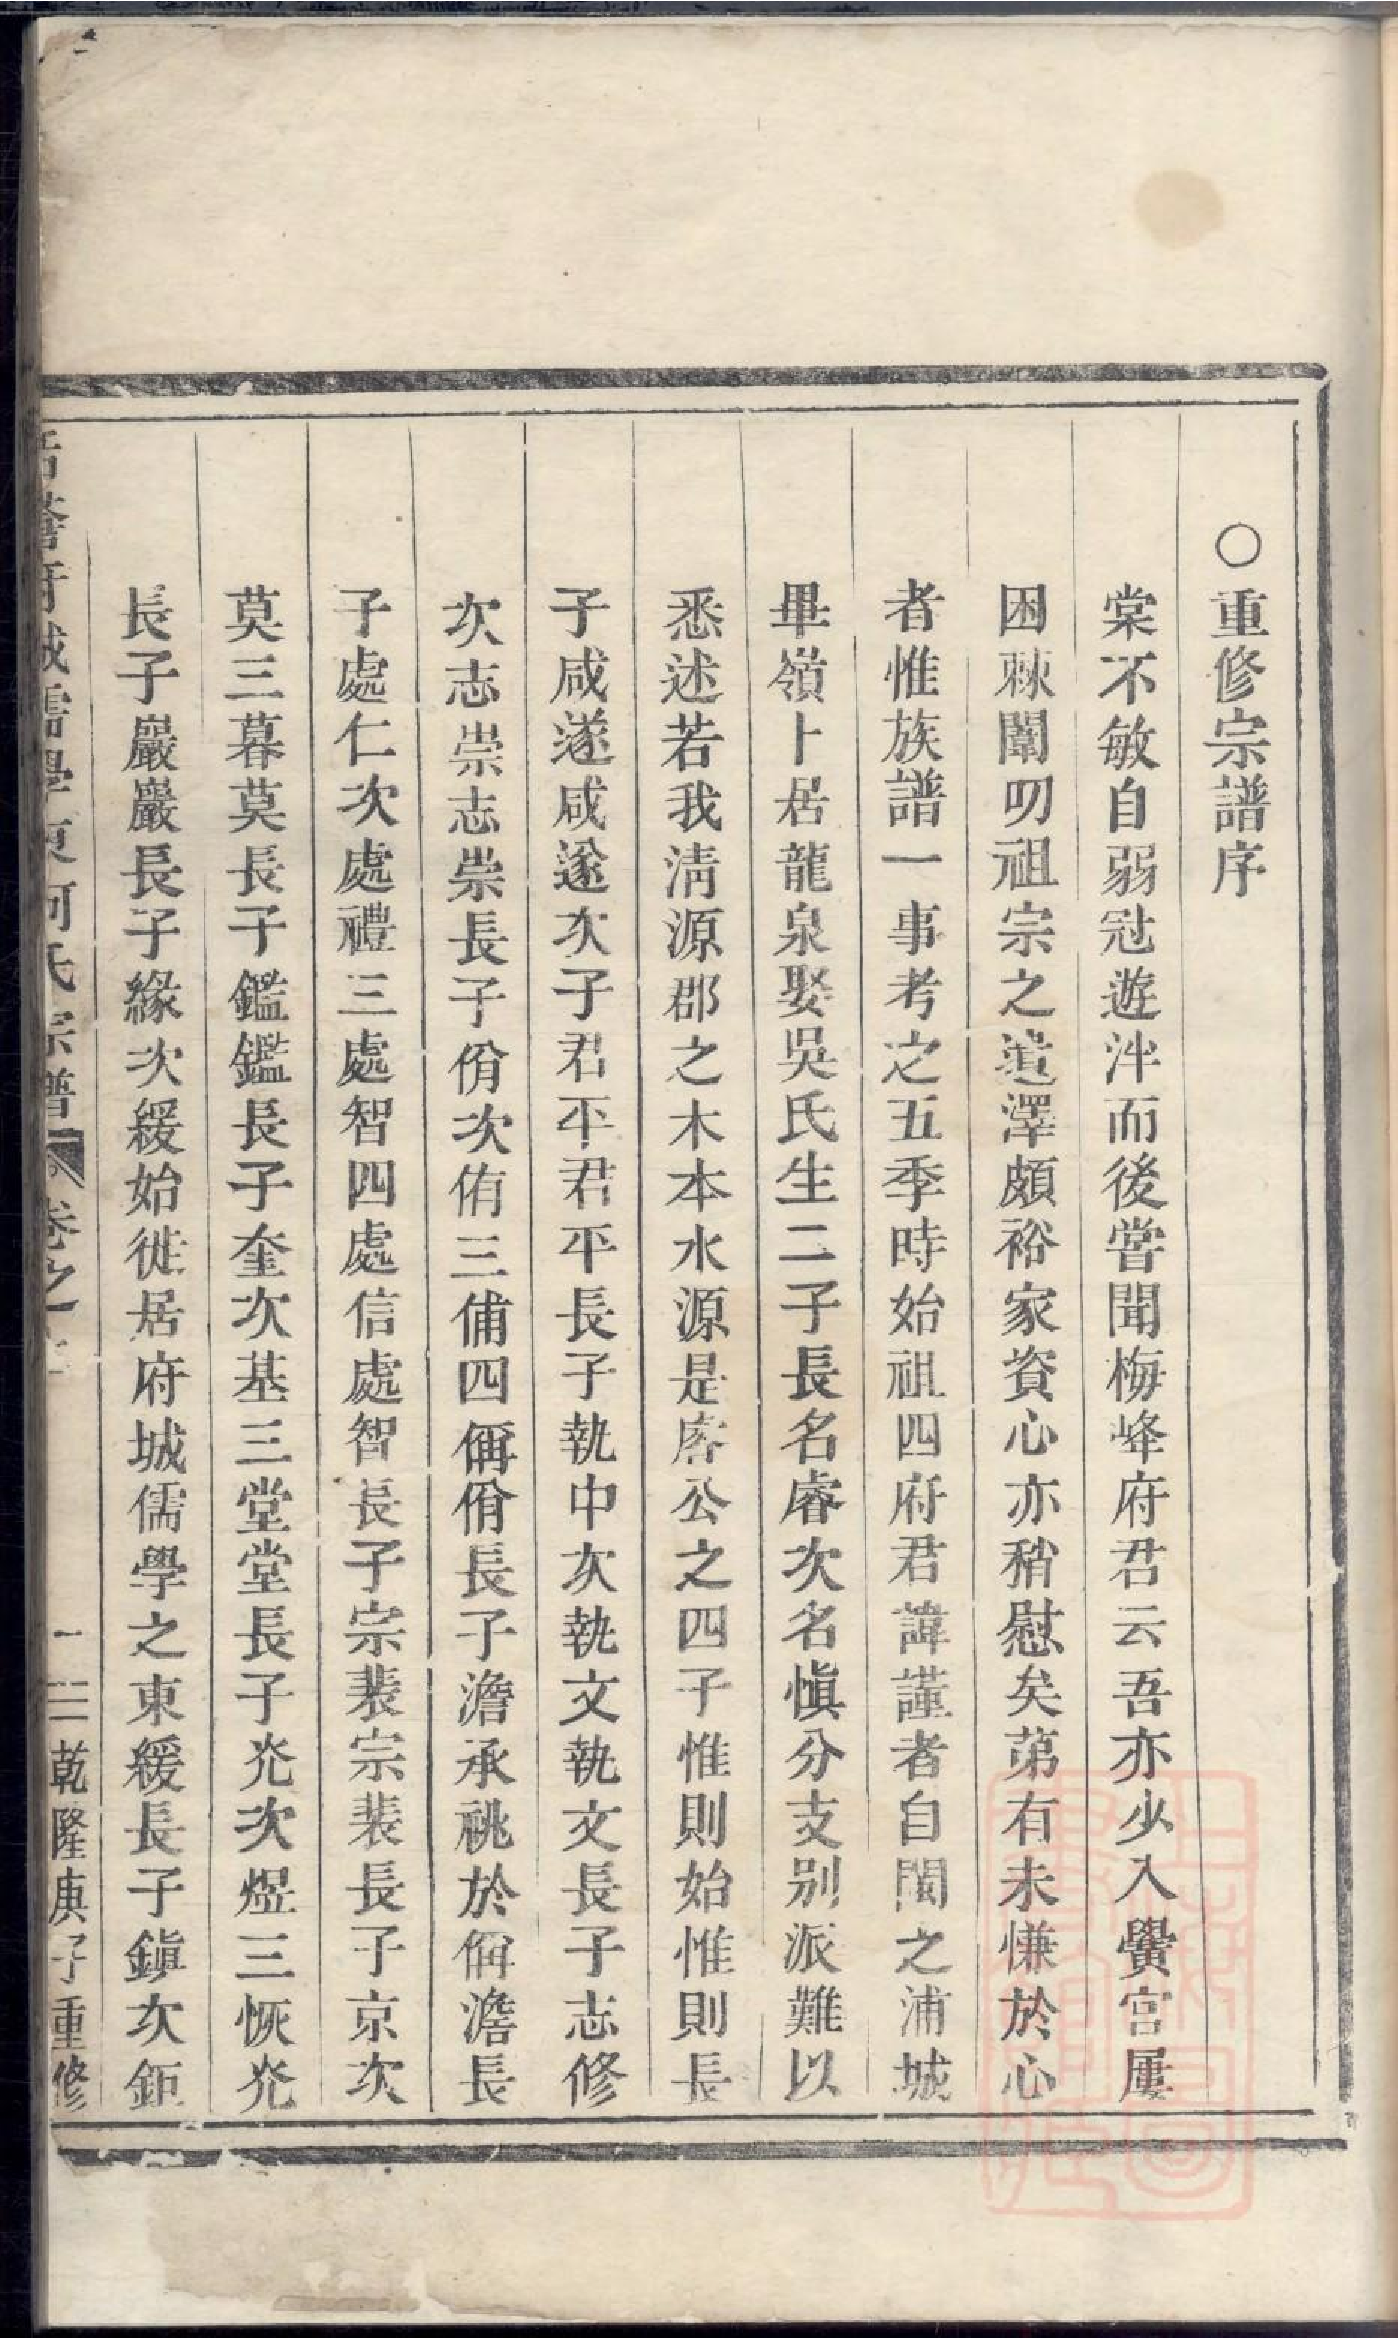 ○重修宗譜序
棠不敏自弱冠遊泮而後嘗聞梅峰府君云吾亦少入黌宮屢
困棘闈叨祖宗之遺澤頗裕家資心亦稍慰矣苐有未慊於心
者惟族譜一事考之五季時始祖四府君諱謹者自閩之浦城
畢嶺卜居龍泉娶吳氏生二子長名睿次名愼分支別派難以
悉述若我淸源郡之木本水源是睿公之四子惟則始惟則長
子咸遂咸遂次子君平君平長子執中次執文執文長子志修
次志崇志崇長子佾次侑三俌四偁佾長子澹承祧於偁澹長
子處仁次處禮三處智四處信處智長子宗裴宗裴長子京次
莫三暮莫長子鑑鑑長子奎次基三堂堂長子炛次煜三恢炛
長子嚴嚴長子緣次緩始徙居府城儒學之東緩長子鎭次鉅
括蒼府城儒學東何氏宗譜 卷之一 一 三 乾隆庚子重修